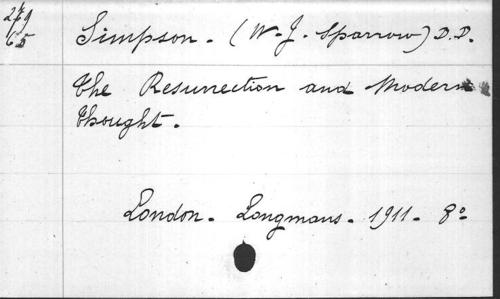 279
65
Simpson. (W. J. Sparrow) D.D.
The Resurrection and Modern
Thought.
London. Longmans. 1911. 8º